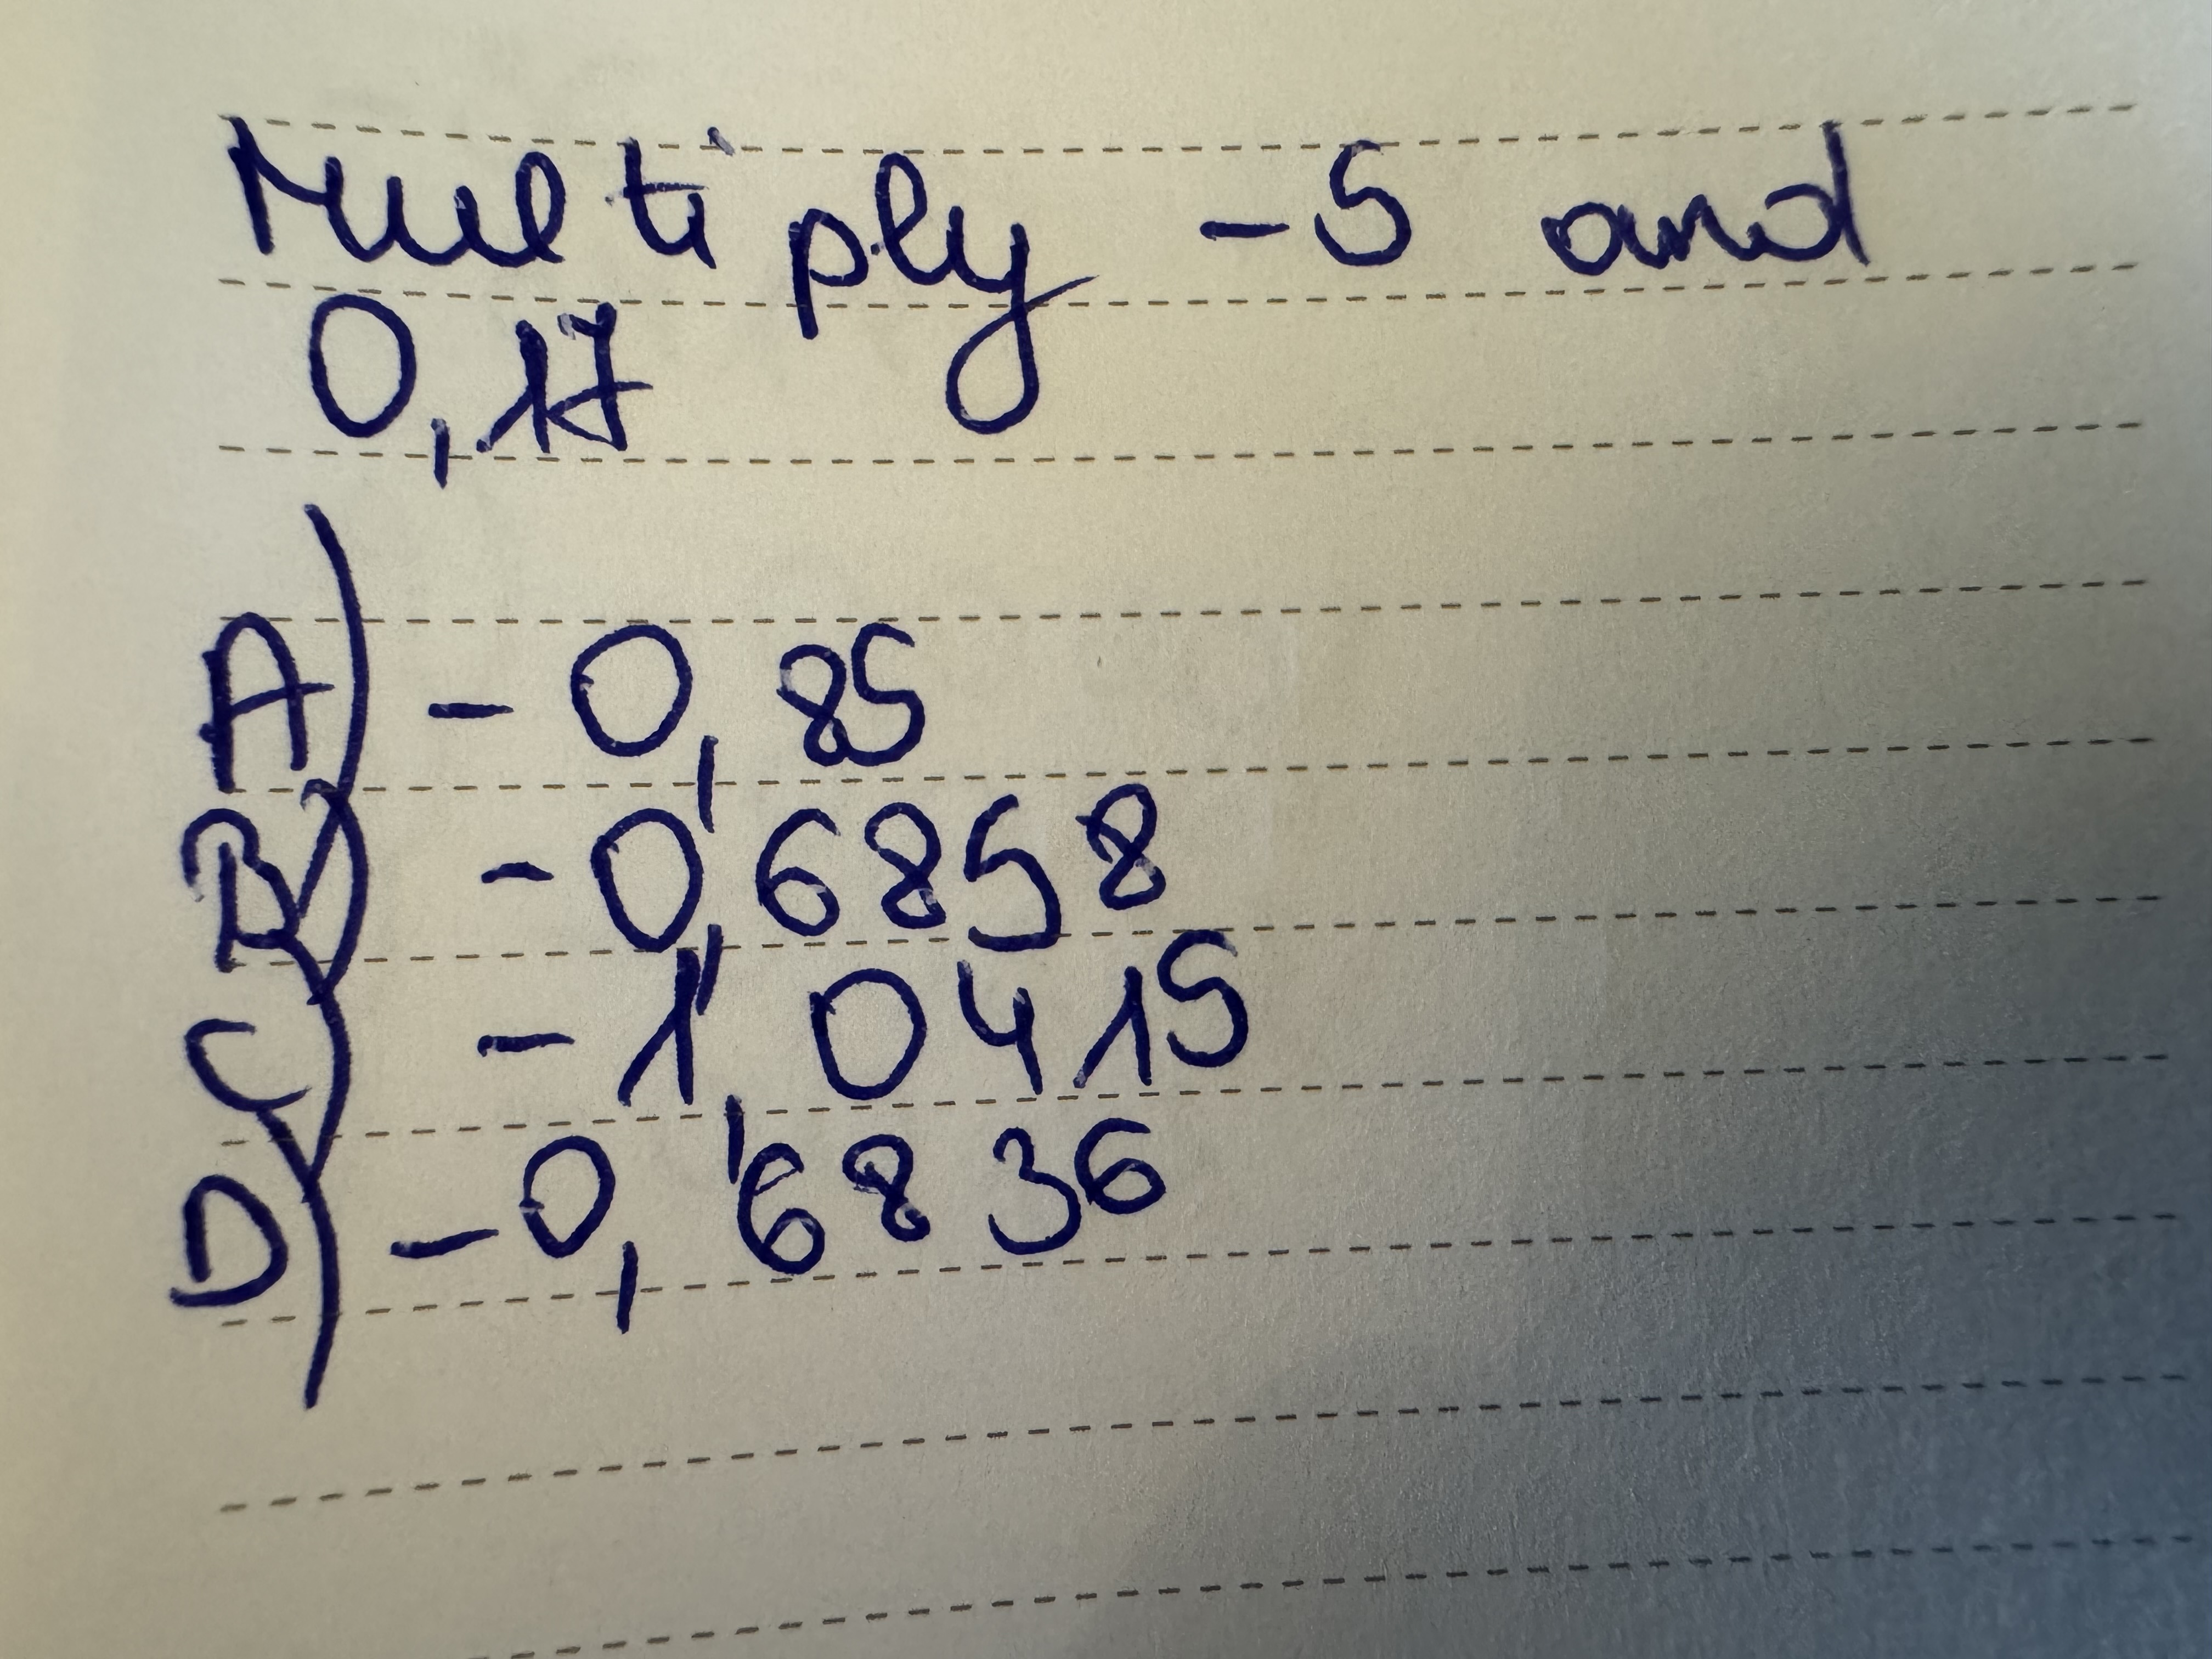 Multiply -5 and
0,17
A) -0,85
B) -0,6858
C) -1,0415
D) -0,6836